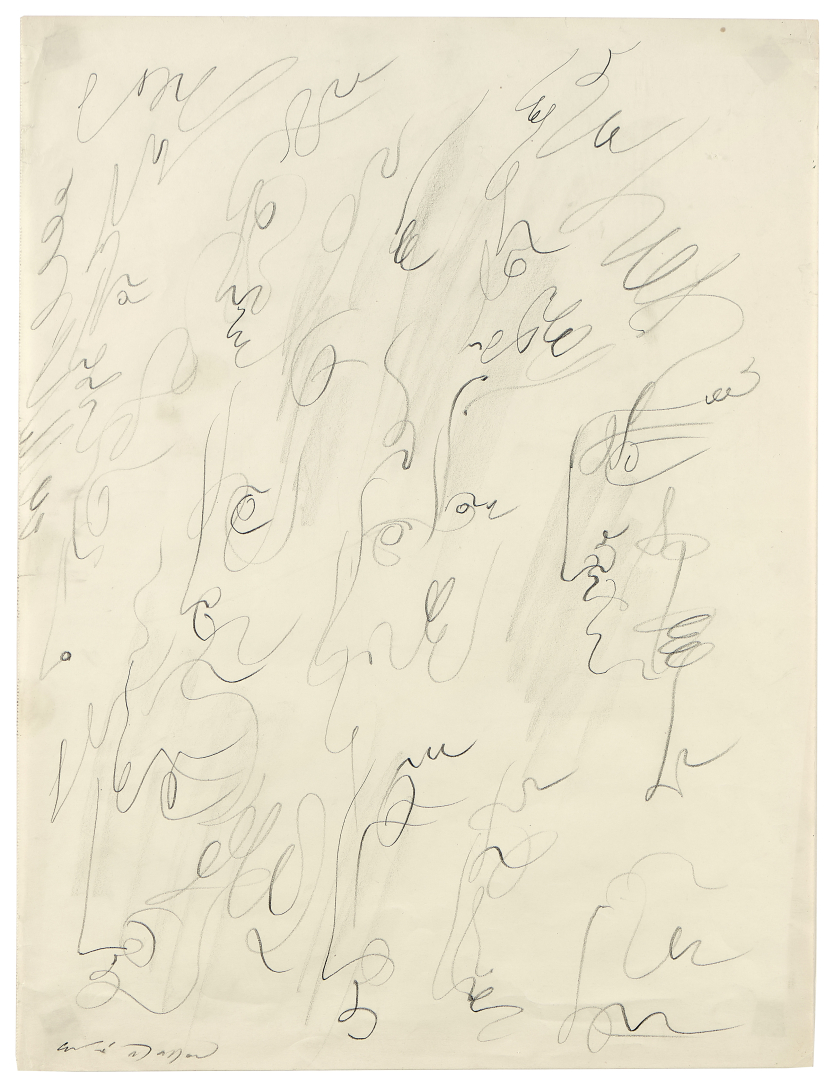 André Masson